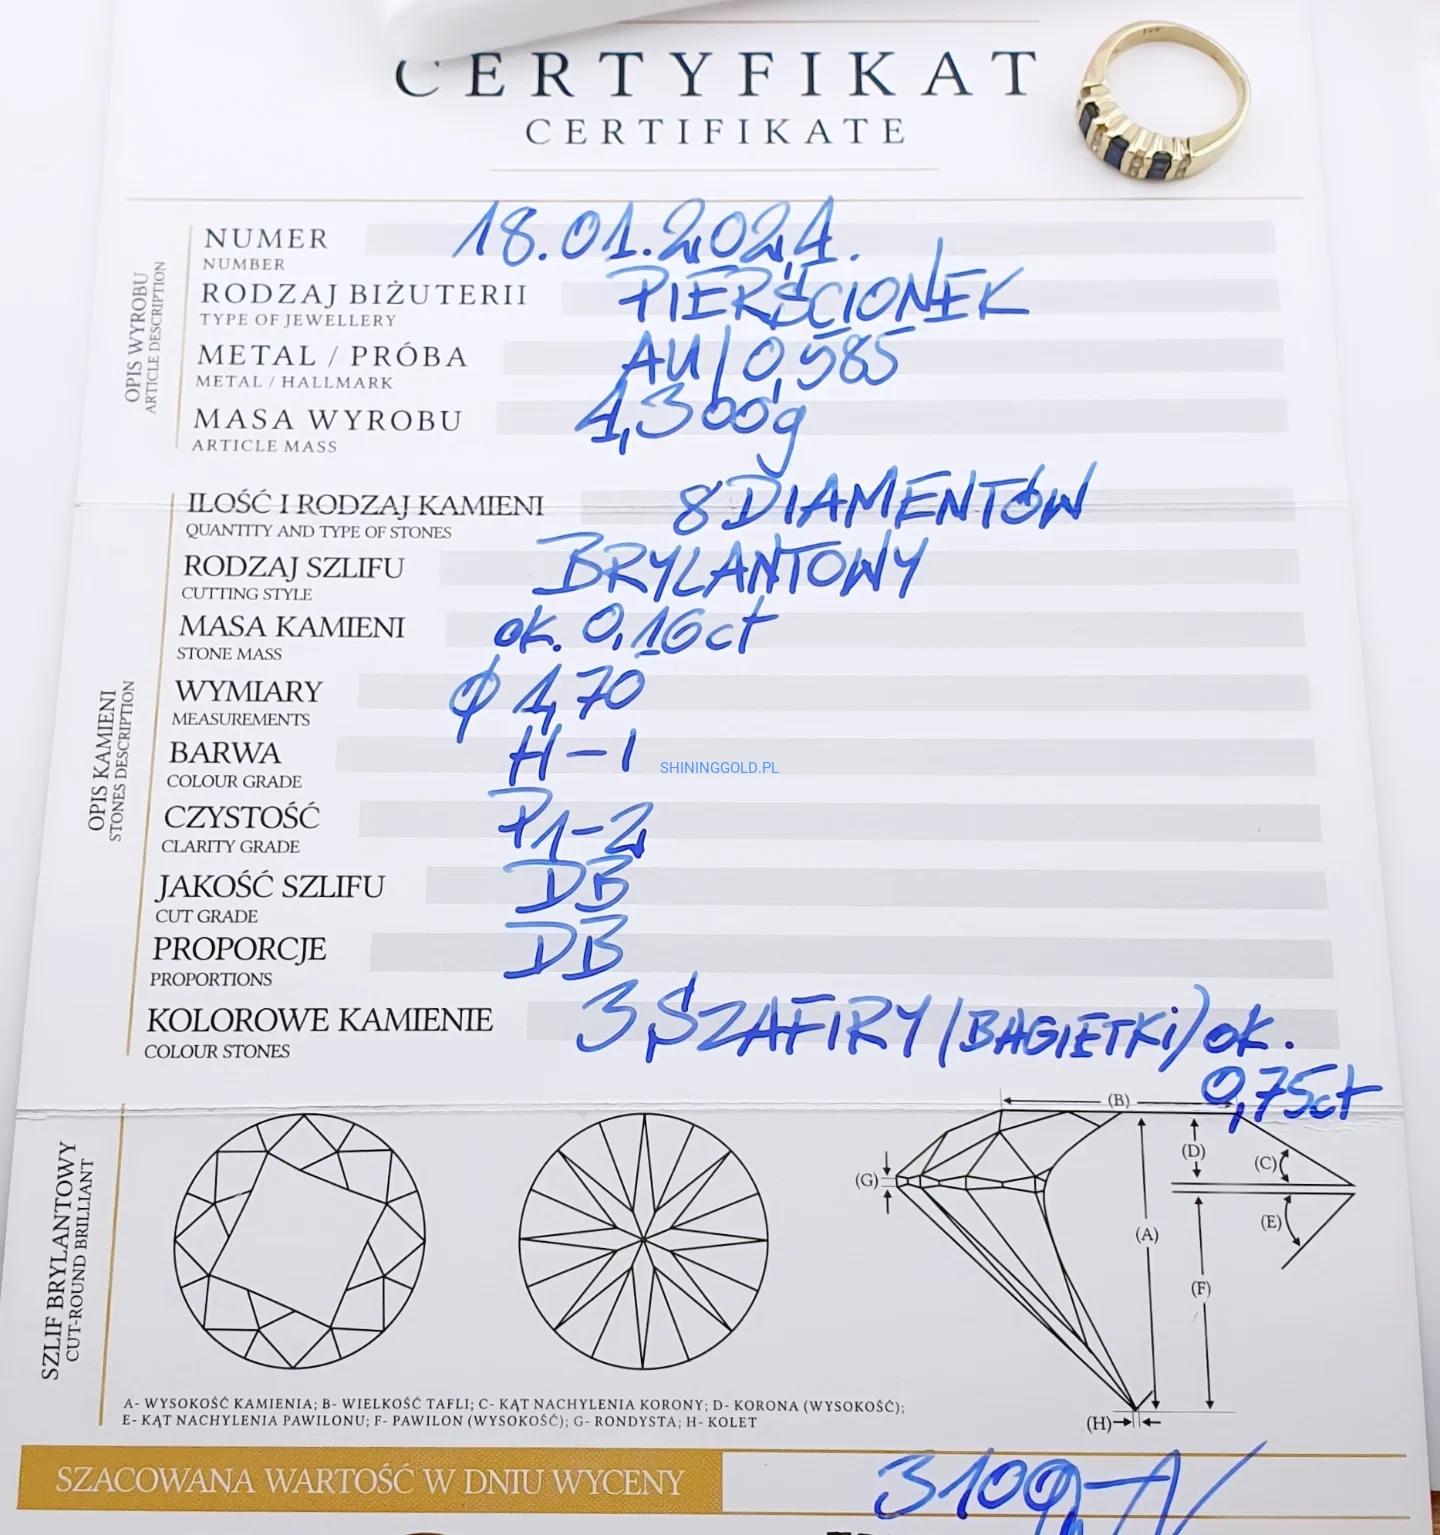 CERTYFIKAT
CERTIFIKATE
NUMER 18.01.2024.
NUMBER
RODZAJ BIŻUTERII PIERŚCIONEK
TYPE OF JEWELLERY
METAL / PRÓBA AU/0,585
METAL / HALLMARK
MASA WYROBU 4,300g
ARTICLE MASS
OPIS WYROBU
ARTICLE DESCRIPTION
ILOŚĆ I RODZAJ KAMIENI 8 DIAMENTÓW
QUANTITY AND TYPE OF STONES
RODZAJ SZLIFU BRYLANTOWY
CUTTING STYLE
MASA KAMIENI ok. 0,16ct
STONE MASS
WYMIARY ϕ 1,70
MEASUREMENTS
BARWA H-I
COLOUR GRADE
SHININGGOLD.PL
CZYSTOŚĆ P1-2
CLARITY GRADE
JAKOŚĆ SZLIFU DB
CUT GRADE
PROPORCJE DB
PROPORTIONS
KOLOROWE KAMIENIE 3 SZAFIRY (BAGIETKi) ok.
COLOUR STONES
0,75ct
OPIS KAMIENI
STONES DESCRIPTION
SZLIF BRYLANTOWY
CUT-ROUND BRILLIANT
(B)
(D)
(C)
(G)
(E)
(A)
(F)
(H)
A- WYSOKOŚĆ KAMIENIA; B- WIELKOŚĆ TAFLI; C- KĄT NACHYLENIA KORONY; D- KORONA (WYSOKOŚĆ);
E- KĄT NACHYLENIA PAWILONU; F- PAWILON (WYSOKOŚĆ); G- RONDYSTA; H- KOLET
SZACOWANA WARTOŚĆ W DNIU WYCENY 3100